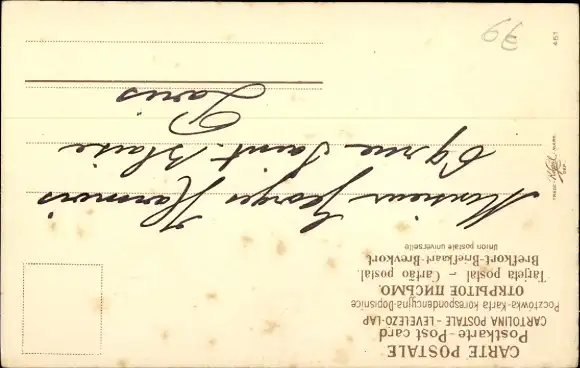 CARTE POSTALE
Postkarte - Post card
CARTOLINA POSTALE - LEVELEZO-LAP
Pocztówka-Karta korespondencyjna-Dopisnice
ОТКРЫТОЕ ПИСЬМО.
Tarjeta postal - Cartão postal.
Brefkort-Briefkaart-Brevkort.
Union postale universelle
Monsieur Georges
69 rue Saint Blaise
Paris
TRADE MARK
461
6E